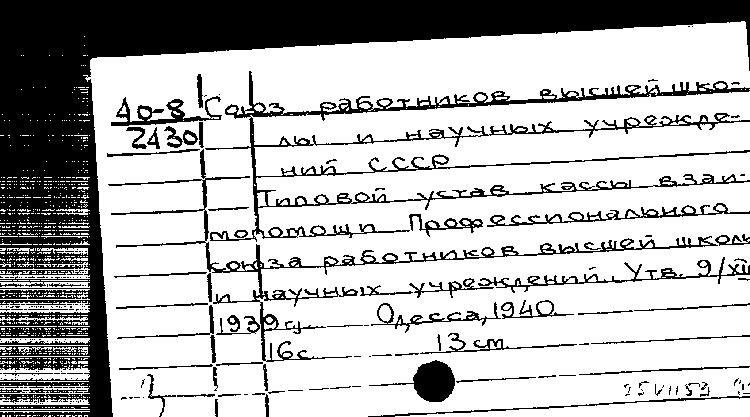 40-8 Союз работников высшей шко-
2430 лы и научных учрежде-
ний СССР
Типовой устав кассы взаи-
мопомощи Профессионального
союза работников высшей школы
и научных учреждений. Утв. 9/XII
1939 г. Одесса, 1940
16 с. 13 см.
25 VII 53